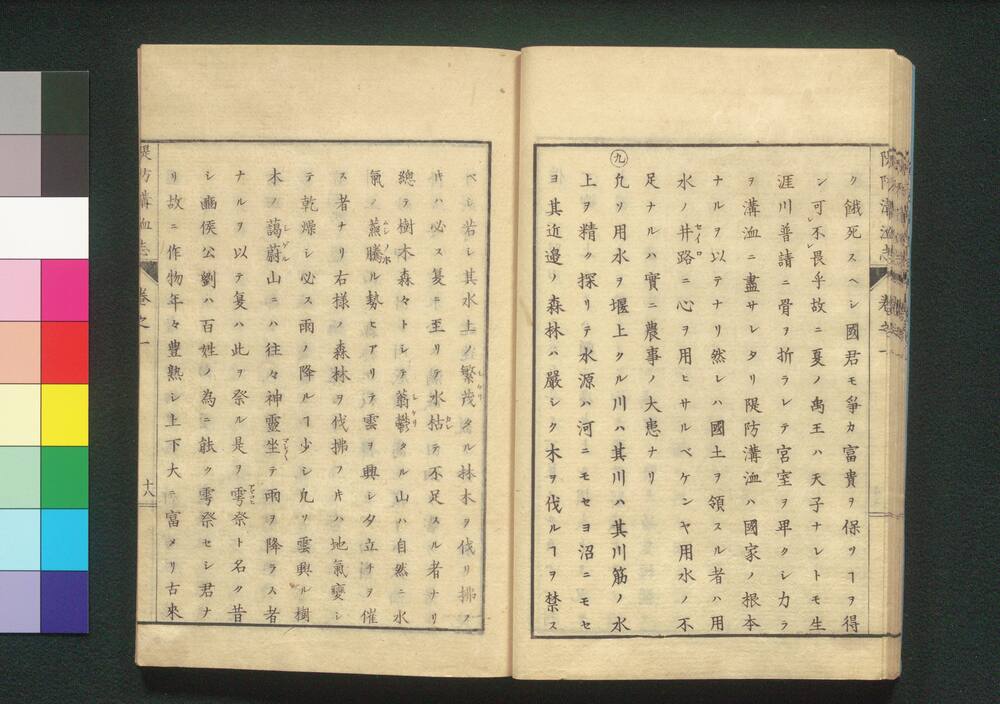 ク餓死スヘシ國君モ爭カ富貴ヲ保ツヿヲ得
ン可不畏乎故ニ夏ノ禹王ハ天子ナレトモ生
涯川普請ニ骨ヲ折ラレテ宮室ヲ卑クシ力ラ
ヲ溝洫ニ盡サレタリ隄防溝洫ハ國家ノ根本
ナルヲ以テナリ然レハ國土ヲ領スル者ハ用
水ノ井路ニ心ヲ用ヒサルベケンヤ用水ノ不
足ナルハ實ニ農事ノ大患ナリ
㊈凢ソ用水ヲ堰上クル川ハ其川ハ其川筋ノ水
上ヲ精ク探リテ水源ハ河ニモセヨ沼ニモセ
ヨ其近邉ノ森林ハ嚴シク木ヲ伐ルヿヲ禁ス
ベシ若シ其水上ノ繁茂タル林木ヲ伐リ拂フ
𪜈ハ必ス旱ニ至リテ水枯テ不足スル者ナリ
總テ樹木森々トシテ蓊鬱タル山ハ自然ニ水
氣ノ蒸騰ル勢ヒアリテ雲ヲ興シ夕立チヲ催
ス者ナリ右様ノ森林ヲ伐拂フ𪜈ハ地氣變シ
テ乾燥シ必ス雨ノ降ルヿ少シ凢ソ雲興ル樹
木ノ藹蔚山ニハ往々神靈坐テ雨ヲ降ラス者
ナルヲ以テ旱ハ此ヲ祭ル是ヲ雩祭ト名ク昔
シ豳侯公劉ハ百姓ノ為ニ能ク雩祭セシ君ナ
リ故ニ作物年々豊熟シ上下大ニ富メリ古來
隄防溝洫志 卷之一 十八